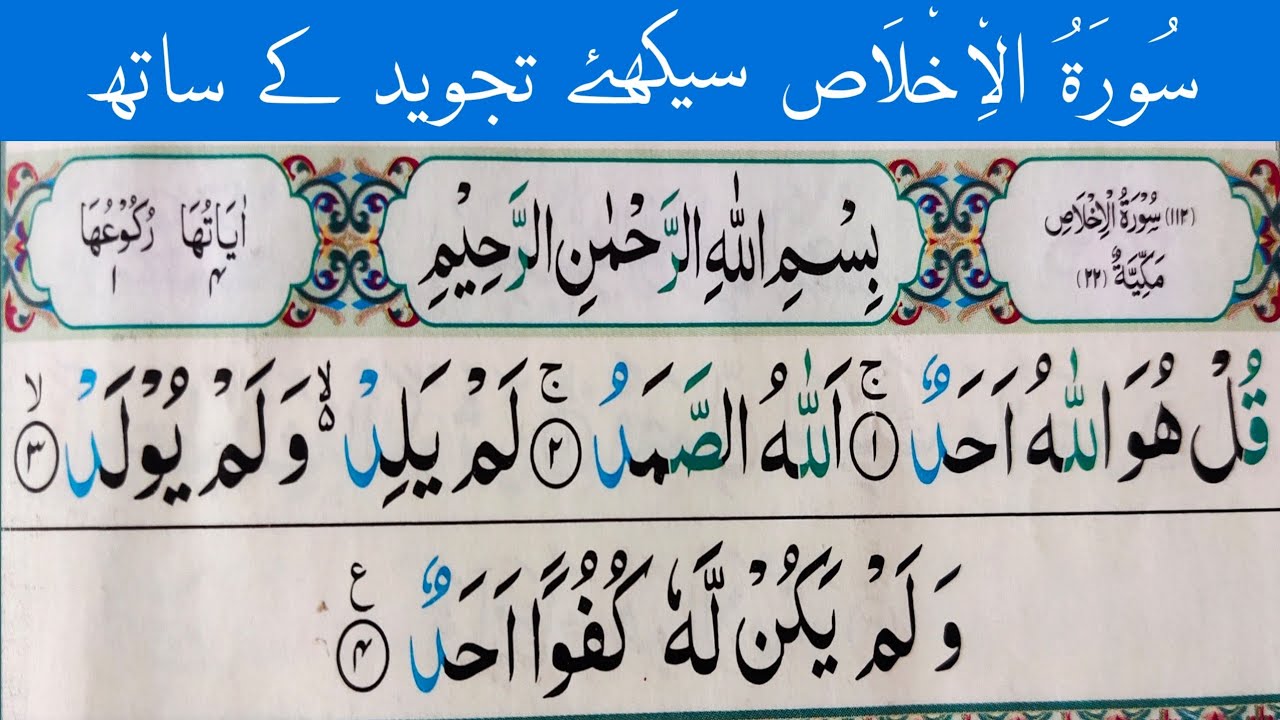 سُورَةُ الْاِخْلَاص سیکھئے تجوید کے ساتھ
﴿١١٢﴾ سُوْرَةُ الْاِخْلَاصِ
مَكِّيَّةٌ ﴿٢٢﴾
بِسْمِ اللّٰهِ الرَّحْمٰنِ الرَّحِيْمِ
اٰيَاتُهَا ٤
رُكُوْعُهَا ١
قُلْ هُوَ اللّٰهُ اَحَدٌ ۚ ﴿١﴾ اَللّٰهُ الصَّمَدُ ۚ ﴿٢﴾ لَمْ يَلِدْ ۙ۬ وَلَمْ يُوْلَدْ ۙ ﴿٣﴾
وَلَمْ يَكُنْ لَّهٗ كُفُوًا اَحَدٌ ﴿٤﴾ ع